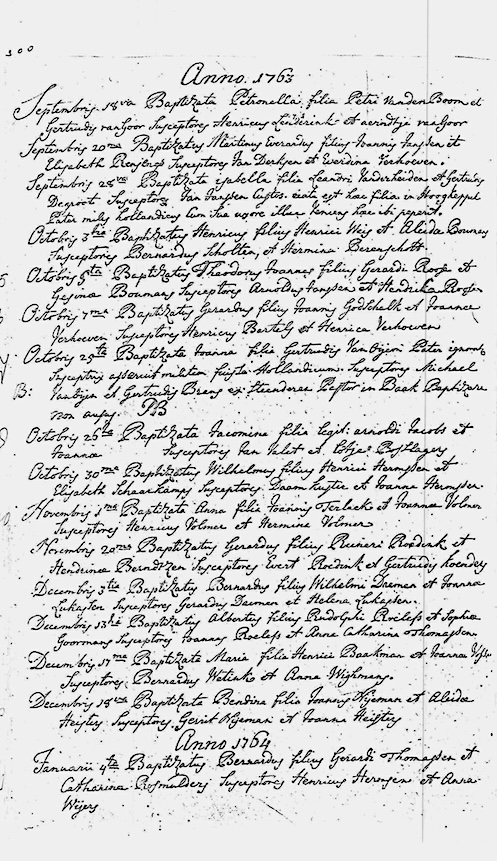 300
Anno. 1763
Septembris 18va Baptizata Petronella filia Petri Vanden Boom et
Gertrudis van Goor Susceptores Henricus Lenderink et van Goor
Septembris 20ma Baptizatus Martinus Everardus filius Joannis Janssen et
Elisabeth Susceptores Jan Derksen et Everdina Verhoeven.
Septembris 28va Baptizata isabella filia Leandri Vanderheiden et Gertrudis
Degroot Susceptores Jan Janssen Custos. est hac filia in
Pater miles hollandicus cum sua uxore illac hac ibi peperit.
Octobris 3tia Baptizatus Henricus filius Henrici Weis et Aleida Boumens
Susceptores Bernardus Scholten, et Hermina Berenschott.
Octobris 5ta Baptizatus Theodorus Joannes filius Gerardi Roose et
Gesina Boumans Susceptores Arnoldus Janssen et Hendrika Roose
Octobris 7ma Baptizatus Gerardus filius Joannis Godschalk et Joanna
Verhoeven Susceptores Henricus Bertels et Henrica Verhoeven
Octobris 25ta Baptizata Joanna filia Gertrudis Van Pater
Susceptris militem Hollandicum. Susceptores Michael
B: et Gertrudis Brens ex Steenderen Pastor in Baak Baptizare
non PB
Octobris 26ta Baptizata Jacomina filia legit: arnoldi Jacobs et
Joannae Susceptores Jan et
Octobris 30ma Baptizatus Wilhelmus filius Henrici Hermssen et
Elisabeth Schaarkamp Susceptores Daam et Joanna Hermssen
Novembris 1ma Baptizata Anna filia Joannis Terlack et Joannae Volmer
Susceptores Henricus Volmer et Hermine Volmer
Novembris 20ma Baptizatus Gerardus filius Reineri Roedink et
Hendrina Berndtzen Susceptores Evert Roedink et Gertrudis
Decembris 3tia Baptizatus Bernardus filius Wilhelmi Daemen et Joanna
Lukassen Susceptores Gerardus Daemen et Helena Lukassen.
Decembris 13tia Baptizatus Albertus filius Rudolphi Roelefs et Sophia
Goormans Susceptores Joannes Roelefs et Anna Catharina Thomassen.
Decembris 17ma Baptizata Maria filia Henrici Baakman et Joanna
Susceptores Bernardus Wetinks et Anna Wissmans.
Decembris 18va Baptizata Bendina filia Joannis et Aleida
Heisties Susceptores Gerrit et Joanna Heisties
Anno 1764
Januarii 4ta Baptizatus Bernardus filius Gerardi Thomassen et
Catharina Rosmulders Susceptores Henricus Hermsen et Anna
Weijers